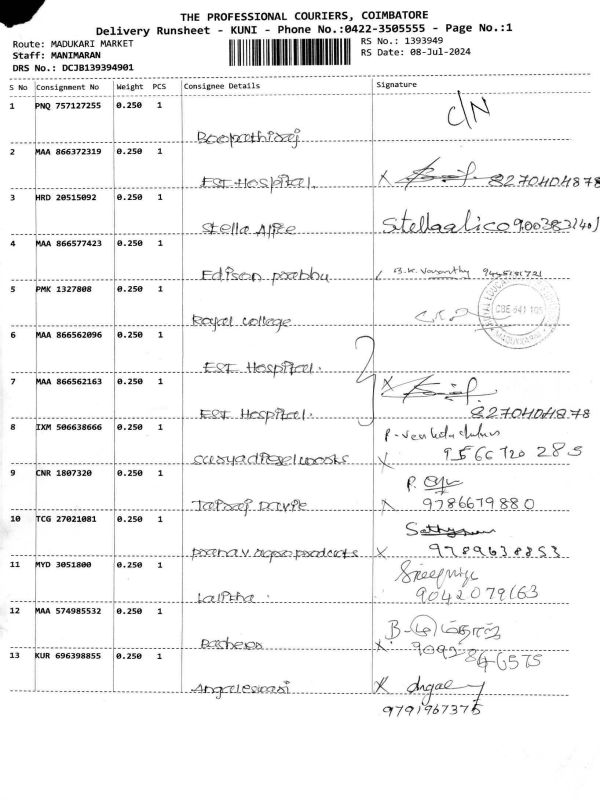 THE PROFESSIONAL COURIERS, COIMBATORE
Delivery Runsheet - KUNI - Phone No.:0422-3505555 - Page No.:1
Route: MADUKARI MARKET
Staff: MANIMARAN
DRS No.: DCJB139394901
RS No.: 1393949
RS Date: 08-Jul-2024
S No Consignment No Weight PCS Consignee Details Signature
1 PNQ 757127255 0.250 1 C/N
Boopathiraj
2 MAA 866372319 0.250 1
ESI Hospital. X 8270404878
3 HRD 20515092 0.250 1
Stella Alice Stellaalice 9003831401
4 MAA 866577423 0.250 1
Edison prabhu B.K. Vasanthy
5 PMK 1327808 0.250 1
Royal college
CBE 641 105
6 MAA 866562096 0.250 1
ESI Hospital.
7 MAA 866562163 0.250 1 X
ESI Hospital. 8270404878
8 IXM 506638666 0.250 1
suryadieselworks X 9566720 285
9 CNR 1807320 0.250 1 P.
X 9786679880
10 TCG 27021081 0.250 1
pranav agro products X 9789638853
11 MYD 3051800 0.250 1
Lalitha. 9042079663
12 MAA 574985532 0.250 1
X
13 KUR 696398855 0.250 1
Angaleswari X Angaley
9791967375